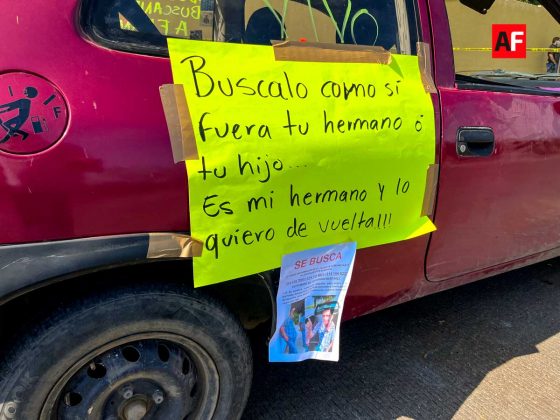 BUSCAN
A F
VIVO
AF
Buscalo como si
fuera tu hermano ó
tu hijo...
Es mi hermano y lo
quiero de vuelta!!!
SE BUSCA